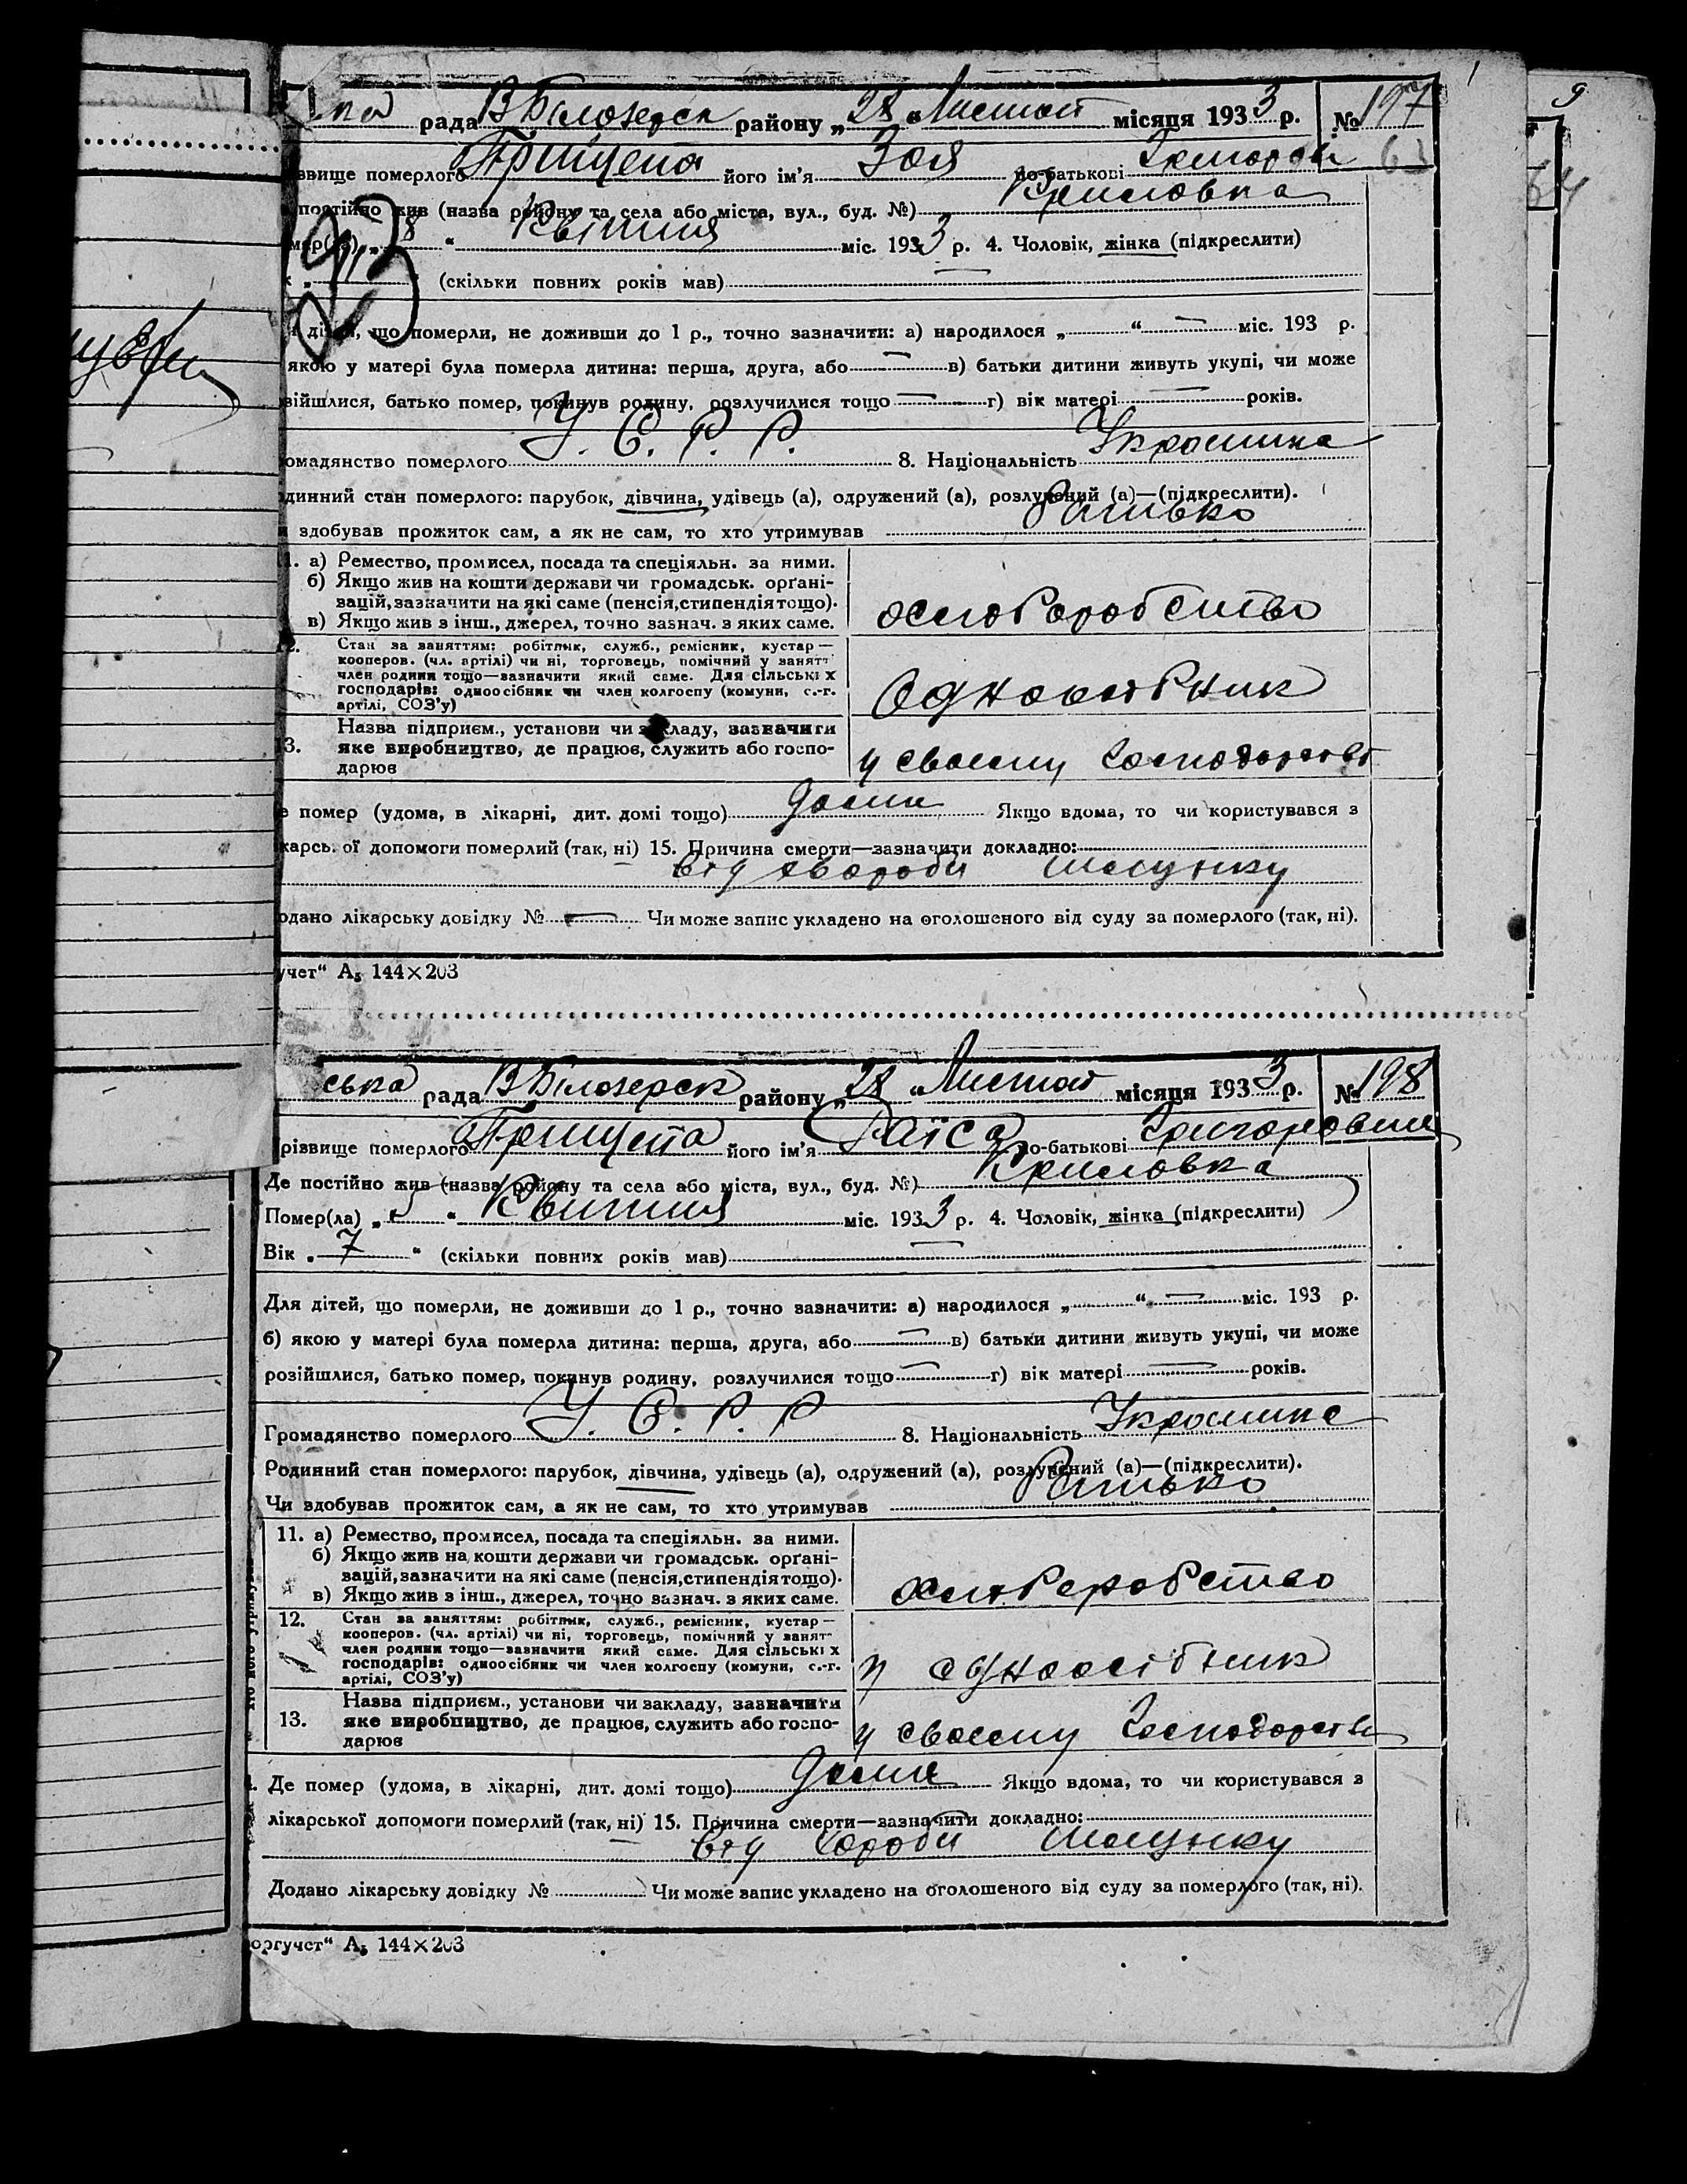 ка рада В Білозерск району „28“ Листоп місяця 1933 р. № 197
9
63
64
звище померлого Прищепа його ім'я Зоя по-батькові Григоров
постійно жив (назва району та села або міста, вул., буд. №) Криловка
мер(ла) „8“ Квітня міс. 1933 р. 4. Чоловік, жінка (підкреслити)
(скільки повних років мав) —
дітей, що померли, не доживши до 1 р., точно зазначити: а) народилося „ “ — міс. 193 р.
якою у матері була померла дитина: перша, друга, або — в) батьки дитини живуть укупі, чи може
війшлися, батько помер, покинув родину, розлучилися тощо — г) вік матері — років.
омадянство померлого У. С. Р. Р. 8. Національність Украинка
динний стан померлого: парубок, дівчина, удівець (а), одружений (а), розлучений (а)—(підкреслити).
и здобував прожиток сам, а як не сам, то хто утримував Батько
1. а) Ремество, промисел, посада та спеціяльн. за ними.
б) Якщо жив на кошти держави чи громадськ. орґані-
зацій, зазначити на які саме (пенсія, стипендія тощо).
в) Якщо жив з інш., джерел, точно зазнач. з яких саме.
хліборобство
2. Стан за заняттям: робітник, служб., ремісник, кустар—
кооперов. (чл. артілі) чи ні, торговець, помічний у занятт
член родини тощо—зазначити який саме. Для сільських
господарів: одноосібник чи член колгоспу (комуни, с.-г.
артілі, СОЗ'у)
Одноосібник
3. Назва підприєм., установи чи закладу, зазначити
яке виробництво, де працює, служить або госпо-
дарює
у своєму господарстві
е помер (удома, в лікарні, дит. домі тощо) дома Якщо вдома, то чи користувався з
карсь ої допомоги померлий (так, ні) 15. Причина смерти—зазначити докладно:
від хвороби шлунку
одано лікарську довідку № — Чи може запис укладено на оголошеного від суду за померлого (так, ні).
учет“ А₅ 144×203
ська рада В Білозерск району „28“ Листоп місяця 1933 р. № 198
різвище померлого Прищепа його ім'я Раїса по-батькові Григоровна
Де постійно жив (назва району та села або міста, вул., буд. №) Криловка
Помер(ла) „5“ Квитня міс. 1933 р. 4. Чоловік, жінка (підкреслити)
Вік „7“ (скільки повних років мав) —
Для дітей, що померли, не доживши до 1 р., точно зазначити: а) народилося „ “ — міс. 193 р.
б) якою у матері була померла дитина: перша, друга, або — в) батьки дитини живуть укупі, чи може
розійшлися, батько помер, покинув родину, розлучилися тощо — г) вік матері — років.
Громадянство померлого У. С. Р. Р 8. Національність Украинка
Родинний стан померлого: парубок, дівчина, удівець (а), одружений (а), розлучений (а)—(підкреслити).
Чи здобував прожиток сам, а як не сам, то хто утримував Батько
11. а) Ремество, промисел, посада та спеціяльн. за ними.
б) Якщо жив на кошти держави чи громадськ. орґані-
зацій, зазначити на які саме (пенсія, стипендія тощо).
в) Якщо жив з інш., джерел, точно зазнач. з яких саме.
хліборобство
12. Стан за заняттям: робітник, служб., ремісник, кустар—
кооперов. (чл. артілі) чи ні, торговець, помічний у занятт
член родини тощо—зазначити який саме. Для сільських
господарів: одноосібник чи член колгоспу (комуни, с.-г.
артілі, СОЗ'у)
у одноосібник
13. Назва підприєм., установи чи закладу, зазначити
яке виробництво, де працює, служить або госпо-
дарює
у своєму господарстві
Де помер (удома, в лікарні, дит. домі тощо) дома Якщо вдома, то чи користувався з
лікарської допомоги померлий (так, ні) 15. Причина смерти—зазначити докладно:
від хороби шлунку
Додано лікарську довідку № Чи може запис укладено на оголошеного від суду за померлого (так, ні).
оргучет“ А₅ 144×203